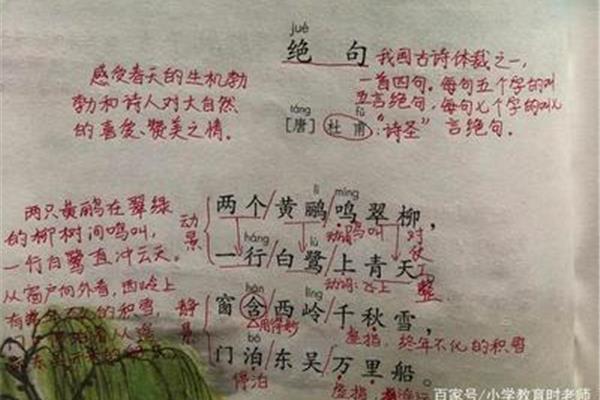 jué
绝 句
我国古诗体裁之一,
一首四句。每句五个字的叫
五言绝句,每句七个字的叫七
言绝句。
感受春天的生机勃
勃和诗人对大自然
的喜爱、赞美之情。
táng fǔ
[唐] 杜 甫 “诗圣”
lí míng
两个/黄鹂/鸣翠柳,
动词 鸣叫
háng lù
一行/白鹭/上青天。
动词:飞上
对仗工整
hán lǐng
窗含/西岭/千秋雪,
用得妙 虚指,终年不化的积雪
bó
门泊/东吴/万里船。
停泊 虚指,
动景
静景
两只黄鹂在翠绿
的柳树间鸣叫,
一行白鹭直冲云天。
从窗户向外看,西岭上
有终年不化的积雪,
百家号/小学教育时老师